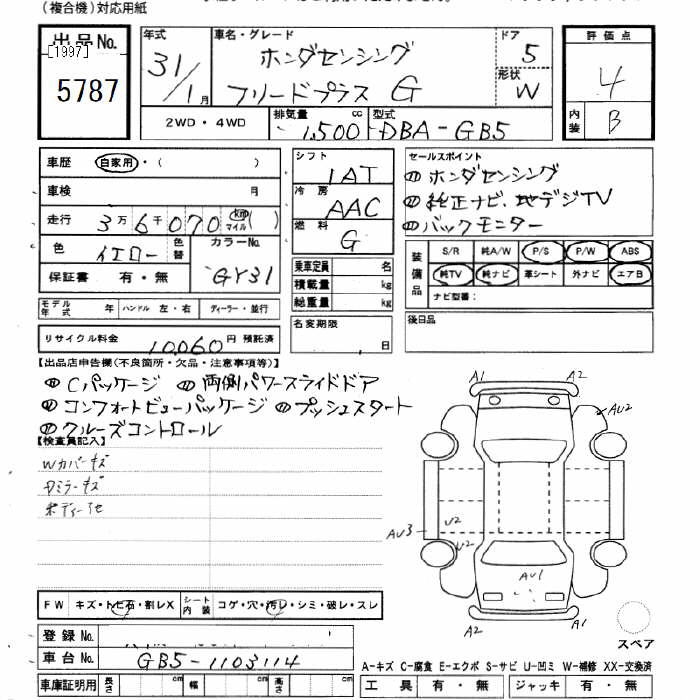 (複合機)対応用紙
出品No.
[1997]
5787
年式
31/1月
車名・グレード
ホンダセンシング
フリードプラス G
ドア
5
形状
W
評価点
4
内装
B
2WD・4WD
排気量
1,500 cc
型式
DBA-GB5
車歴 自家用・( )
車検 月
走行 3万6千070 km マイル( )
色 イエロー 色替
カラーNo.
GY31
保証書 有・無
シフト
1AT
冷房
AAC
燃料
G
乗車定員 名
積載量 kg
総重量 kg
セールスポイント
⑪ホンダセンシング
⑪純正ナビ、地デジTV
⑪バックモニター
装備品
S/R 純A/W P/S P/W ABS
純TV 純ナビ 革シート 外ナビ エアB
ナビ型番:
モデル年式 年 ハンドル 左・右 ディーラー・並行
リサイクル料金 10,060 円 預託済
名変期限 日
後日品
【出品店申告欄(不良箇所・欠品・注意事項等)】
⑪Cパッケージ ⑪両側パワースライドドア
⑪コンフォートビューパッケージ ⑪プッシュスタート
⑪クルーズコントロール
【検査員記入】
Wカバーキズ
Dミラーキズ
ボディー
A1 A2
AU2
AU3
U2
U2
AU1
A2 A1
スペア
FW キズ・トビ石・割レX シート内装 コゲ・穴・汚レ・シミ・破レ・スレ
登録No.
車台No. GB5-1103114
車庫証明用 長さ cm 幅 cm 高さ cm
A-キズ C-腐食 E-エクボ S-サビ U-凹ミ W-補修 XX-交換済
工具 有・無 ジャッキ 有・無